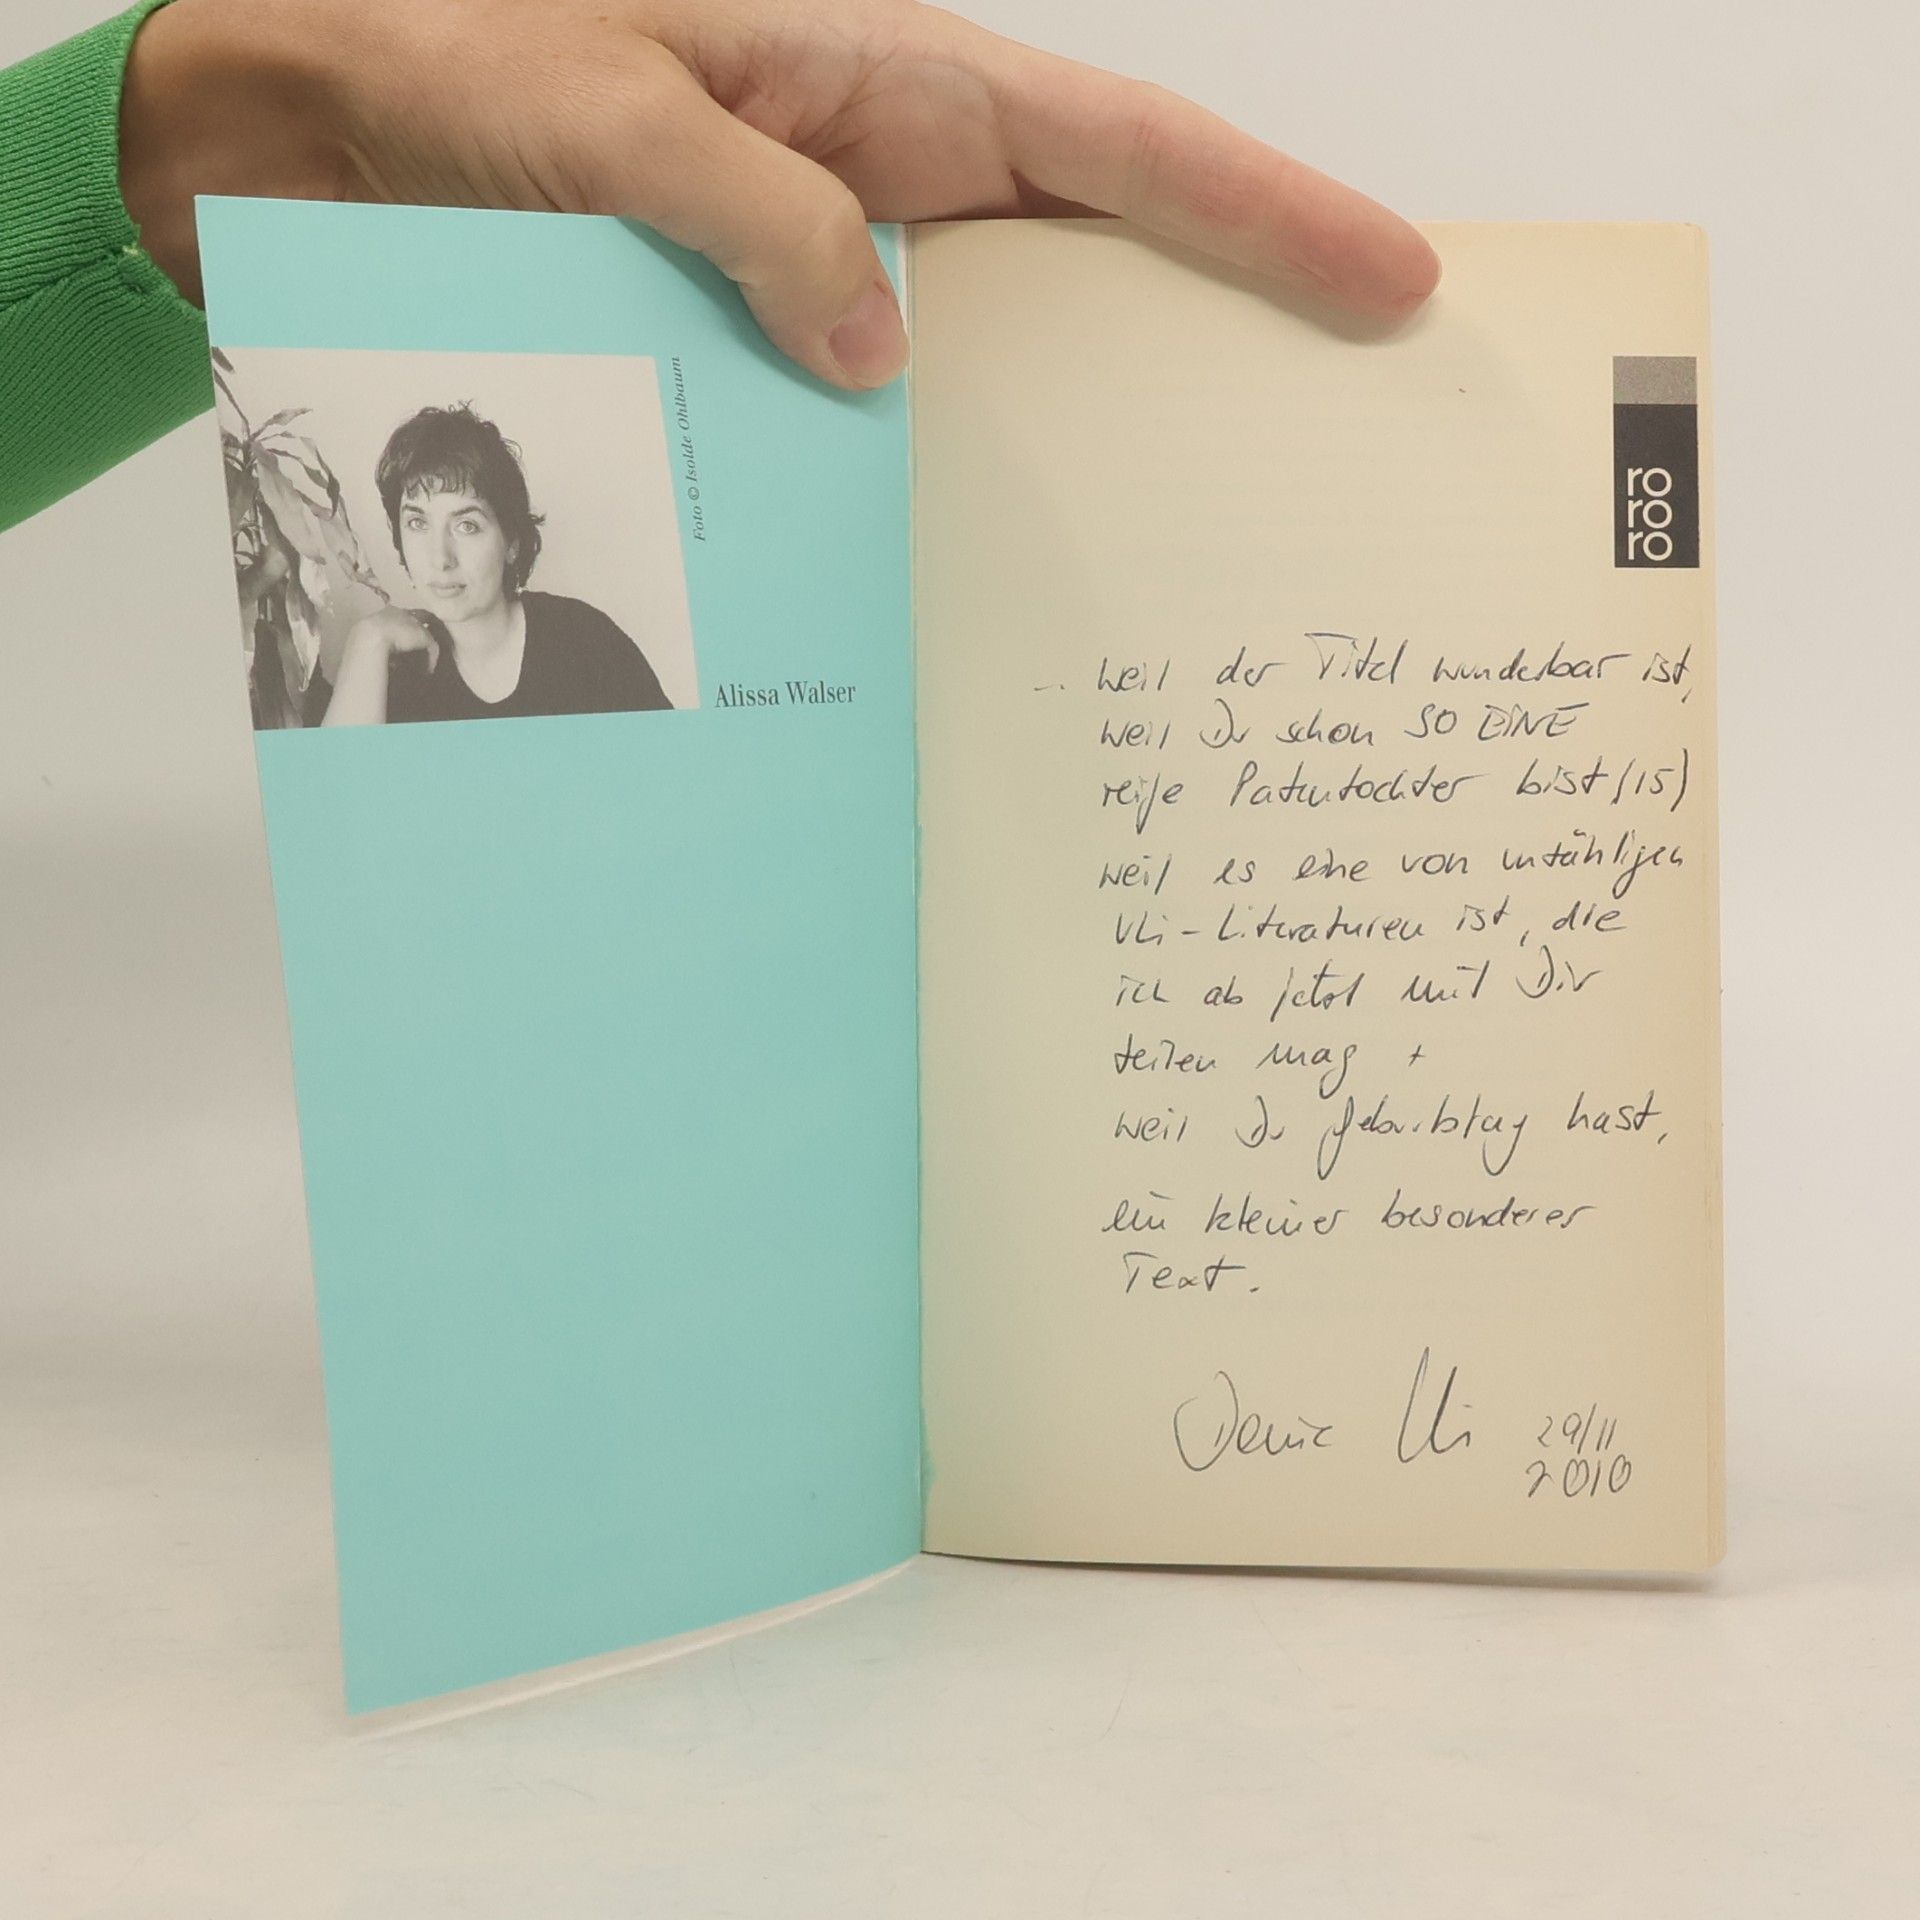 Foto © Isolde Ohlbaum
Alissa Walser
ro
ro
ro
... weil der Titel wunderbar ist,
weil Du schon SO EINE
reife Patentochter bist (15)
weil es eine von unzähligen
Uli-Literaturen ist, die
ich ab jetzt mit Dir
teilen mag +
weil Du Geburtstag hast,
ein kleiner besonderer
Text.
Uli 29/11
2010